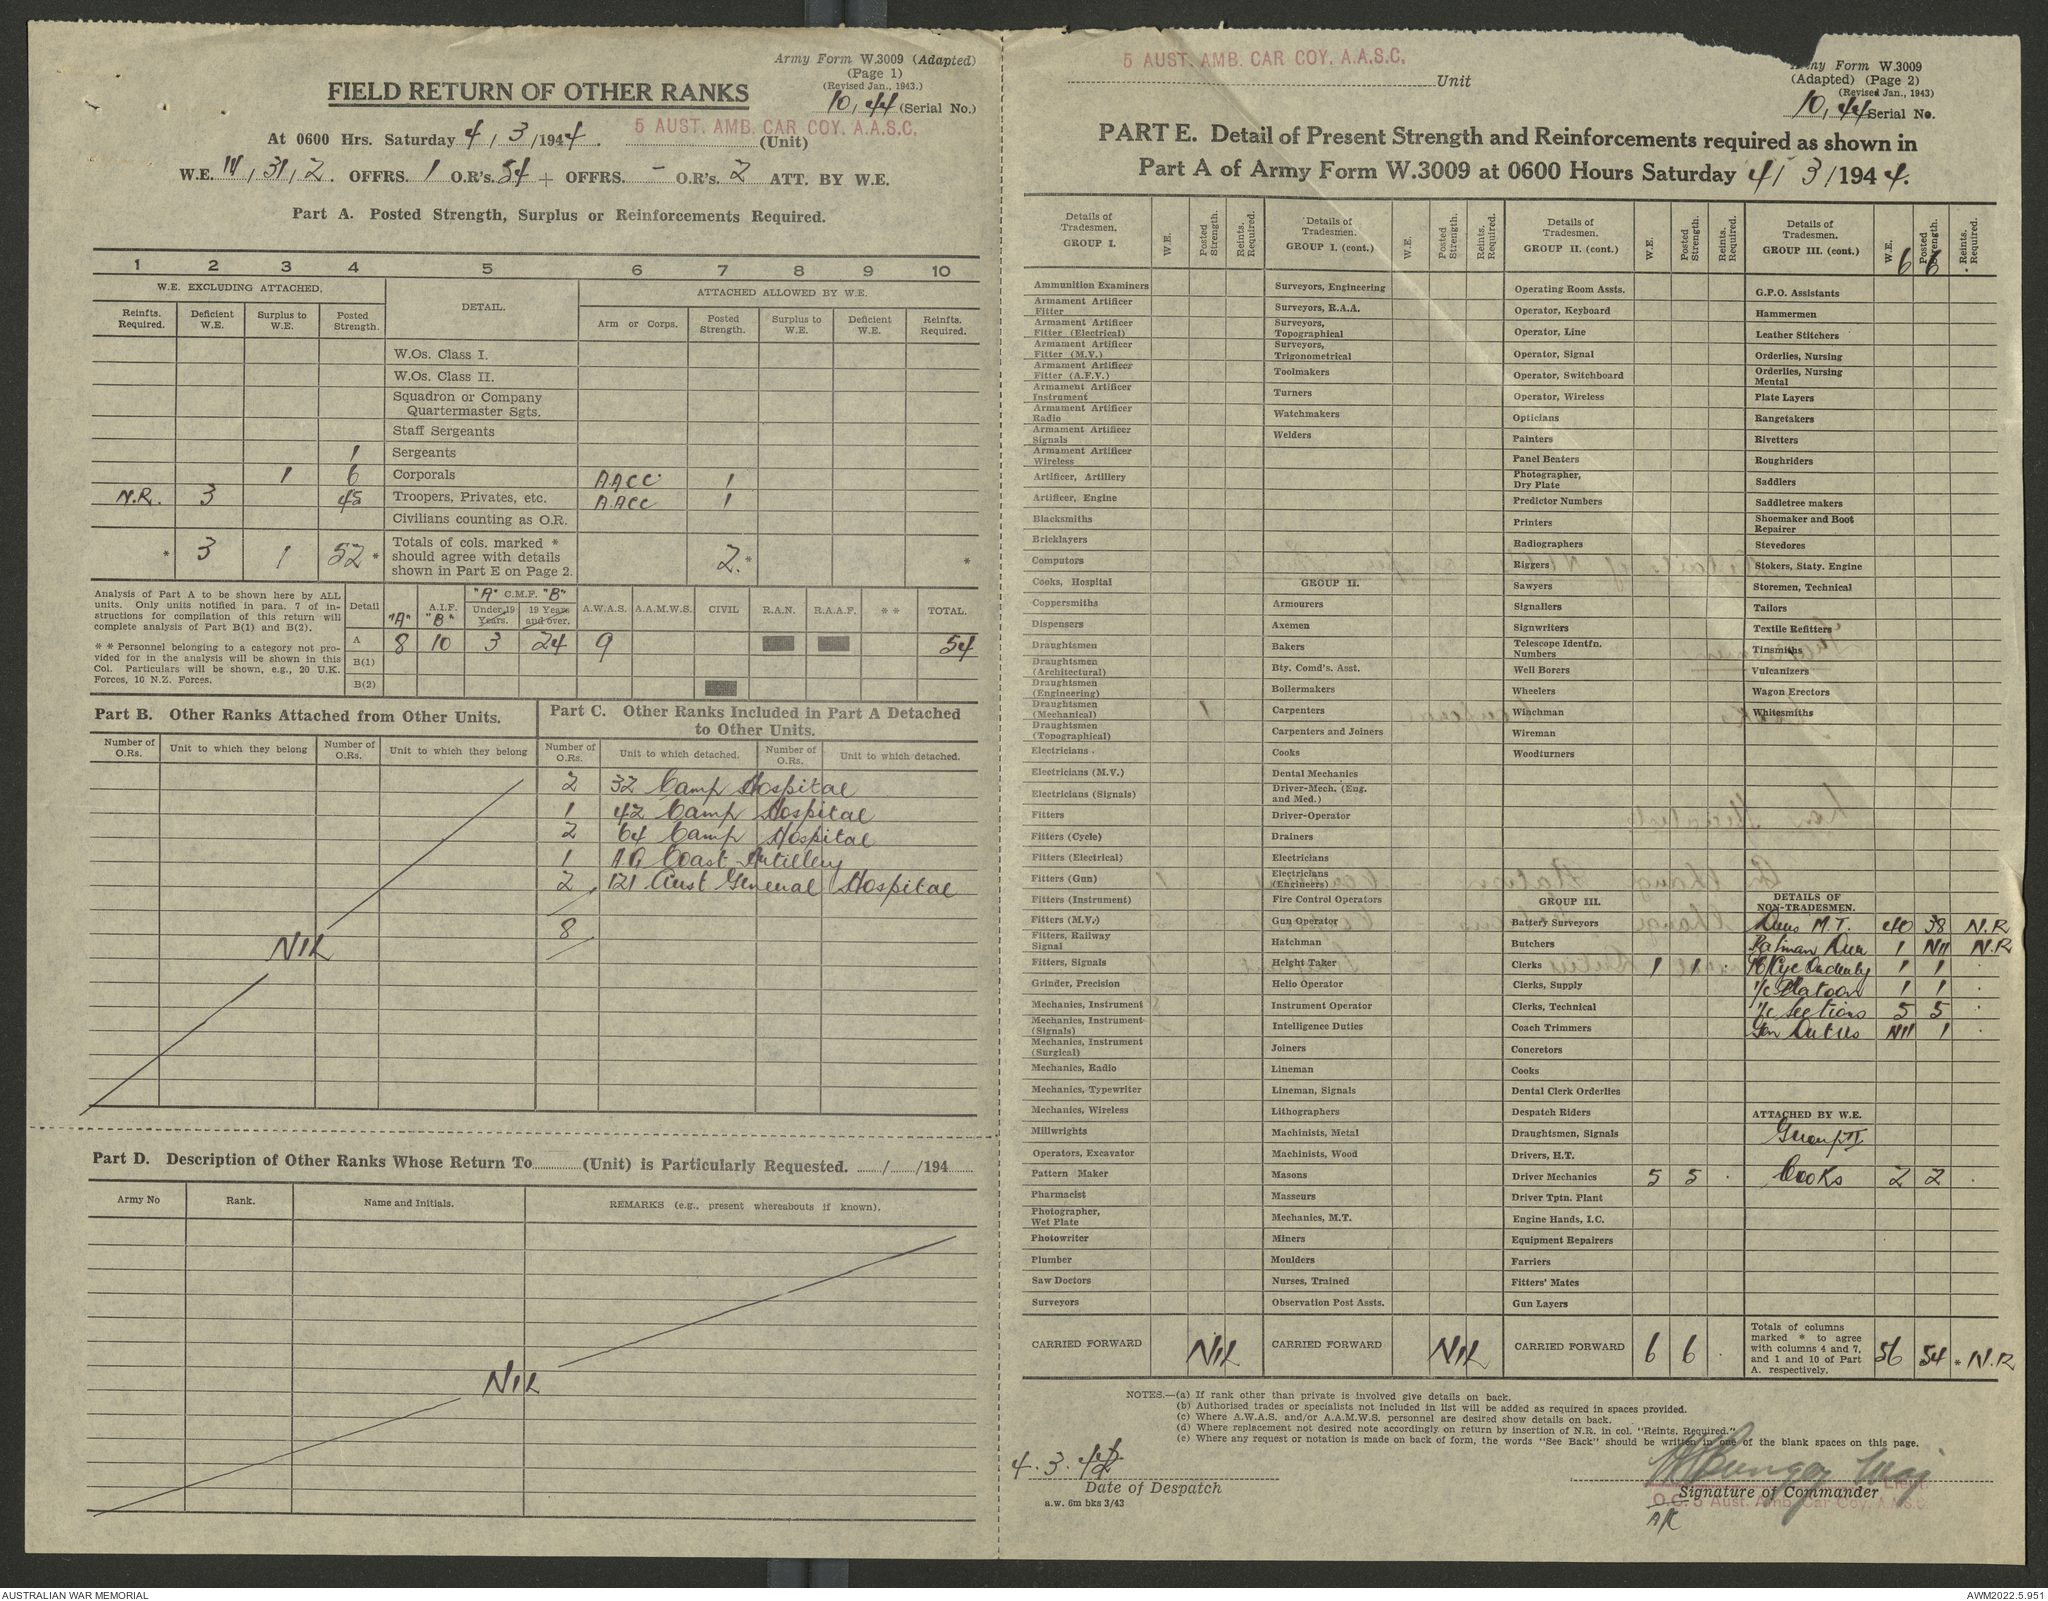 Army Form W.3009 (Adapted)
(Page 1)
(Revised Jan., 1943.)
FIELD RETURN OF OTHER RANKS
10, 44 (Serial No.)
At 0600 Hrs. Saturday 4/3/1944. 5 AUST. AMB. CAR COY. A.A.S.C. (Unit)
W.E. IV/31/2. OFFRS. 1 O.R's. 54 + OFFRS. - O.R's. 2 ATT. BY W.E.
Part A. Posted Strength, Surplus or Reinforcements Required.
1 2 3 4 5 6 7 8 9 10
W.E. EXCLUDING ATTACHED. DETAIL. ATTACHED ALLOWED BY W.E.
Reinfts. Required. Deficient W.E. Surplus to W.E. Posted Strength. Arm or Corps. Posted Strength. Surplus to W.E. Deficient W.E. Reinfts. Required.
W.Os. Class I.
W.Os. Class II.
Squadron or Company Quartermaster Sgts.
Staff Sergeants
1 Sergeants
1 6 Corporals AACC 1
N.R. 3 45 Troopers, Privates, etc. AACC 1
Civilians counting as O.R.
* 3 1 52 * Totals of cols. marked * should agree with details shown in Part E on Page 2. 2. * *
Analysis of Part A to be shown here by ALL units. Only units notified in para. 7 of instructions for compilation of this return will complete analysis of Part B(1) and B(2).
* * Personnel belonging to a category not provided for in the analysis will be shown in this Col. Particulars will be shown, e.g., 20 U.K. Forces, 10 N.Z. Forces.
Detail "A" A.I.F. "B" "A" C.M.F. "B" Under 19 Years. 19 Years and over. A.W.A.S. A.A.M.W.S. CIVIL R.A.N. R.A.A.F. * * TOTAL.
A 8 10 3 24 9 54
B(1)
B(2)
Part B. Other Ranks Attached from Other Units.
Number of O.Rs. Unit to which they belong Number of O.Rs. Unit to which they belong
NIL
Part C. Other Ranks Included in Part A Detached to Other Units.
Number of O.Rs. Unit to which detached. Number of O.Rs. Unit to which detached.
2 32 Camp Hospital
1 42 Camp Hospital
2 64 Camp Hospital
1 A.A Coast Artillery
2 121 Aust General Hospital
8
Part D. Description of Other Ranks Whose Return To (Unit) is Particularly Requested. / /194
Army No Rank. Name and Initials. REMARKS (e.g., present whereabouts if known).
NIL
5 AUST. AMB. CAR COY. A.A.S.C. Unit
Army Form W.3009
(Adapted) (Page 2)
(Revised Jan., 1943)
10, 44 Serial No.
PART E. Detail of Present Strength and Reinforcements required as shown in
Part A of Army Form W.3009 at 0600 Hours Saturday 4/3/1944.
Details of Tradesmen. GROUP I. W.E. Posted Strength. Reints. Required.
Ammunition Examiners
Armament Artificer Fitter
Armament Artificer Fitter (Electrical)
Armament Artificer Fitter (M.V.)
Armament Artificer Fitter (A.F.V.)
Armament Artificer Instrument
Armament Artificer Radio
Armament Artificer Signals
Armament Artificer Wireless
Artificer, Artillery
Artificer, Engine
Blacksmiths
Bricklayers
Computors
Cooks, Hospital
Coppersmiths
Dispensers
Draughtsmen
Draughtsmen (Architectural)
Draughtsmen (Engineering)
Draughtsmen (Mechanical)
Draughtsmen (Topographical)
Electricians
Electricians (M.V.)
Electricians (Signals)
Fitters
Fitters (Cycle)
Fitters (Electrical)
Fitters (Gun)
Fitters (Instrument)
Fitters (M.V.)
Fitters, Railway Signal
Fitters, Signals
Grinder, Precision
Mechanics, Instrument
Mechanics, Instrument (Signals)
Mechanics, Instrument (Surgical)
Mechanics, Radio
Mechanics, Typewriter
Mechanics, Wireless
Millwrights
Operators, Excavator
Pattern Maker
Pharmacist
Photographer, Wet Plate
Photowriter
Plumber
Saw Doctors
Surveyors
CARRIED FORWARD NIL
Details of Tradesmen. GROUP I. (cont.) W.E. Posted Strength. Reints. Required.
Surveyors, Engineering
Surveyors, R.A.A.
Surveyors, Topographical
Surveyors, Trigonometrical
Toolmakers
Turners
Watchmakers
Welders
GROUP II.
Armourers
Axemen
Bakers
Bty. Comd's. Asst.
Boilermakers
Carpenters
Carpenters and Joiners
Cooks
Dental Mechanics
Driver-Mech. (Eng. and Med.)
Driver-Operator
Drainers
Electricians
Electricians (Engineers)
Fire Control Operators
Gun Operator
Hatchman
Height Taker
Helio Operator
Instrument Operator
Intelligence Duties
Joiners
Lineman
Lineman, Signals
Lithographers
Machinists, Metal
Machinists, Wood
Masons
Masseurs
Mechanics, M.T.
Miners
Moulders
Nurses, Trained
Observation Post Assts.
CARRIED FORWARD NIL
Details of Tradesmen. GROUP II. (cont.) W.E. Posted Strength. Reints. Required.
Operating Room Assts.
Operator, Keyboard
Operator, Line
Operator, Signal
Operator, Switchboard
Operator, Wireless
Opticians
Painters
Panel Beaters
Photographer, Dry Plate
Predictor Numbers
Printers
Radiographers
Riggers
Sawyers
Signallers
Signwriters
Telescope Identfn. Numbers
Well Borers
Wheelers
Winchman
Wireman
Woodturners
GROUP III.
Battery Surveyors
Butchers
Clerks 1 1
Clerks, Supply
Clerks, Technical
Coach Trimmers
Concretors
Cooks
Dental Clerk Orderlies
Despatch Riders
Draughtsmen, Signals
Drivers, H.T.
Driver Mechanics 5 5
Driver Tptn. Plant
Engine Hands, I.C.
Equipment Repairers
Farriers
Fitters' Mates
Gun Layers
CARRIED FORWARD 6 6
Details of Tradesmen. GROUP III. (cont.) W.E. 6 Posted Strength. 6 Reints. Required.
G.P.O. Assistants
Hammermen
Leather Stitchers
Orderlies, Nursing
Orderlies, Nursing Mental
Plate Layers
Rangetakers
Rivetters
Roughriders
Saddlers
Saddletree makers
Shoemaker and Boot Repairer
Stevedores
Stokers, Staty. Engine
Storemen, Technical
Tailors
Textile Refitters
Tinsmiths
Vulcanizers
Wagon Erectors
Whitesmiths
DETAILS OF NON-TRADESMEN.
Dvrs M.T. 40 38 N.R
Batman Dvr 1 Nil N.R
M/Cyc Orderly 1 1
I/c Platoon 1 1
I/c Sections 5 5
Gen Duties Nil 1
ATTACHED BY W.E.
Group II
Cooks 2 2
Totals of columns marked * to agree with columns 4 and 7, and 1 and 10 of Part A. respectively. 56 54 * N.R
NOTES.—(a) If rank other than private is involved give details on back.
(b) Authorised trades or specialists not included in list will be added as required in spaces provided.
(c) Where A.W.A.S. and/or A.A.M.W.S. personnel are desired show details on back.
(d) Where replacement not desired note accordingly on return by insertion of N.R. in col. "Reints. Required."
(e) Where any request or notation is made on back of form, the words "See Back" should be written in one of the blank spaces on this page.
4.3.44
Date of Despatch
a.w. 6m bks 3/43
Maj
Lieut.
Signature of Commander
O.C. 5 Aust. Amb. Car Coy. A.A.S.C.
AUSTRALIAN WAR MEMORIAL
AWM2022.5.951